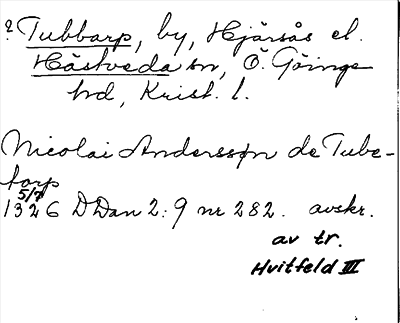 ? Tubbarp, by, Hjärsås el.
Hästveda sn, Ö. Göinge
hd, Krist. l.
Nicolai Anderssøn de Tube-
torp
5/7
1326 DDan 2:9 nr 282. avskr.
av tr.
Hvitfeld III